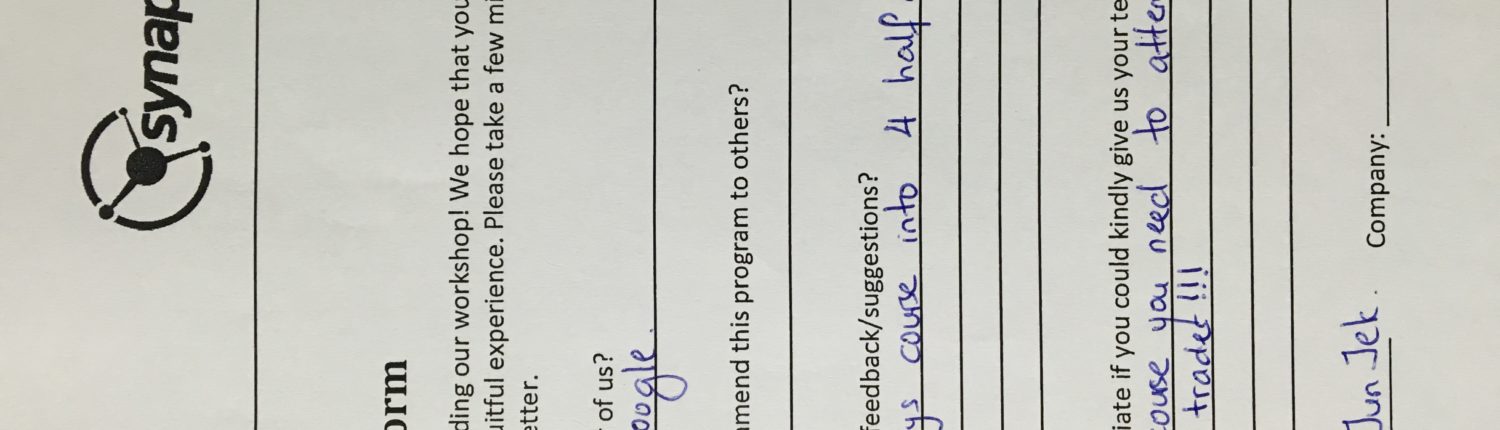 synap
orm
ding our workshop! We hope that you
uitful experience. Please take a few mi
etter.
of us?
oogle.
mmend this program to others?
feedback/suggestions?
ys course into 4 half
iate if you could kindly give us your te
course you need to atten
trader!!!
Jun Jek. Company: